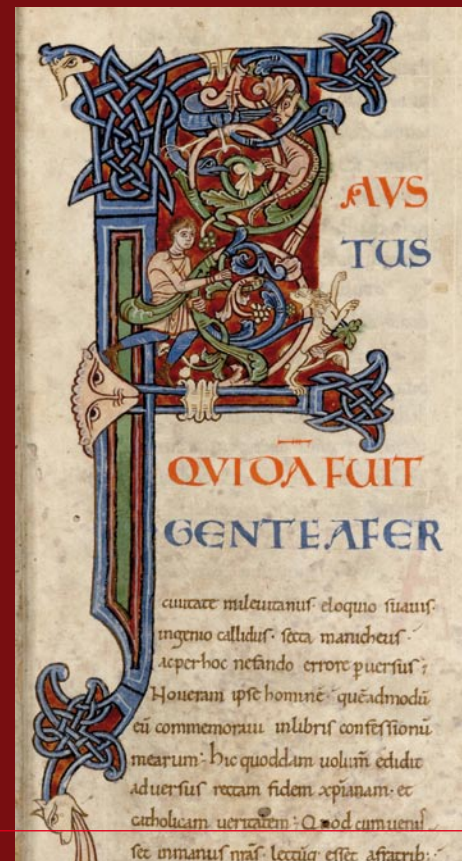 FAVS
TUS
QVIDĀ FUIT
GENTE AFER
ciuitate mileuitanus· eloquio suauis·
ingenio callidus· secta manicheus·
acperhoc nefando errore puersus;
Noueram ipse hominē· quēadmodū
eū commemoraui inlibris confessionū
mearum· hic quoddam volum̄ edidit
aduersus rectam fidem xp̄ianam· et
catholicam ueritatem· Quod cum uenis
set inmanus nr̄as· lectūq; esset afratrib:·